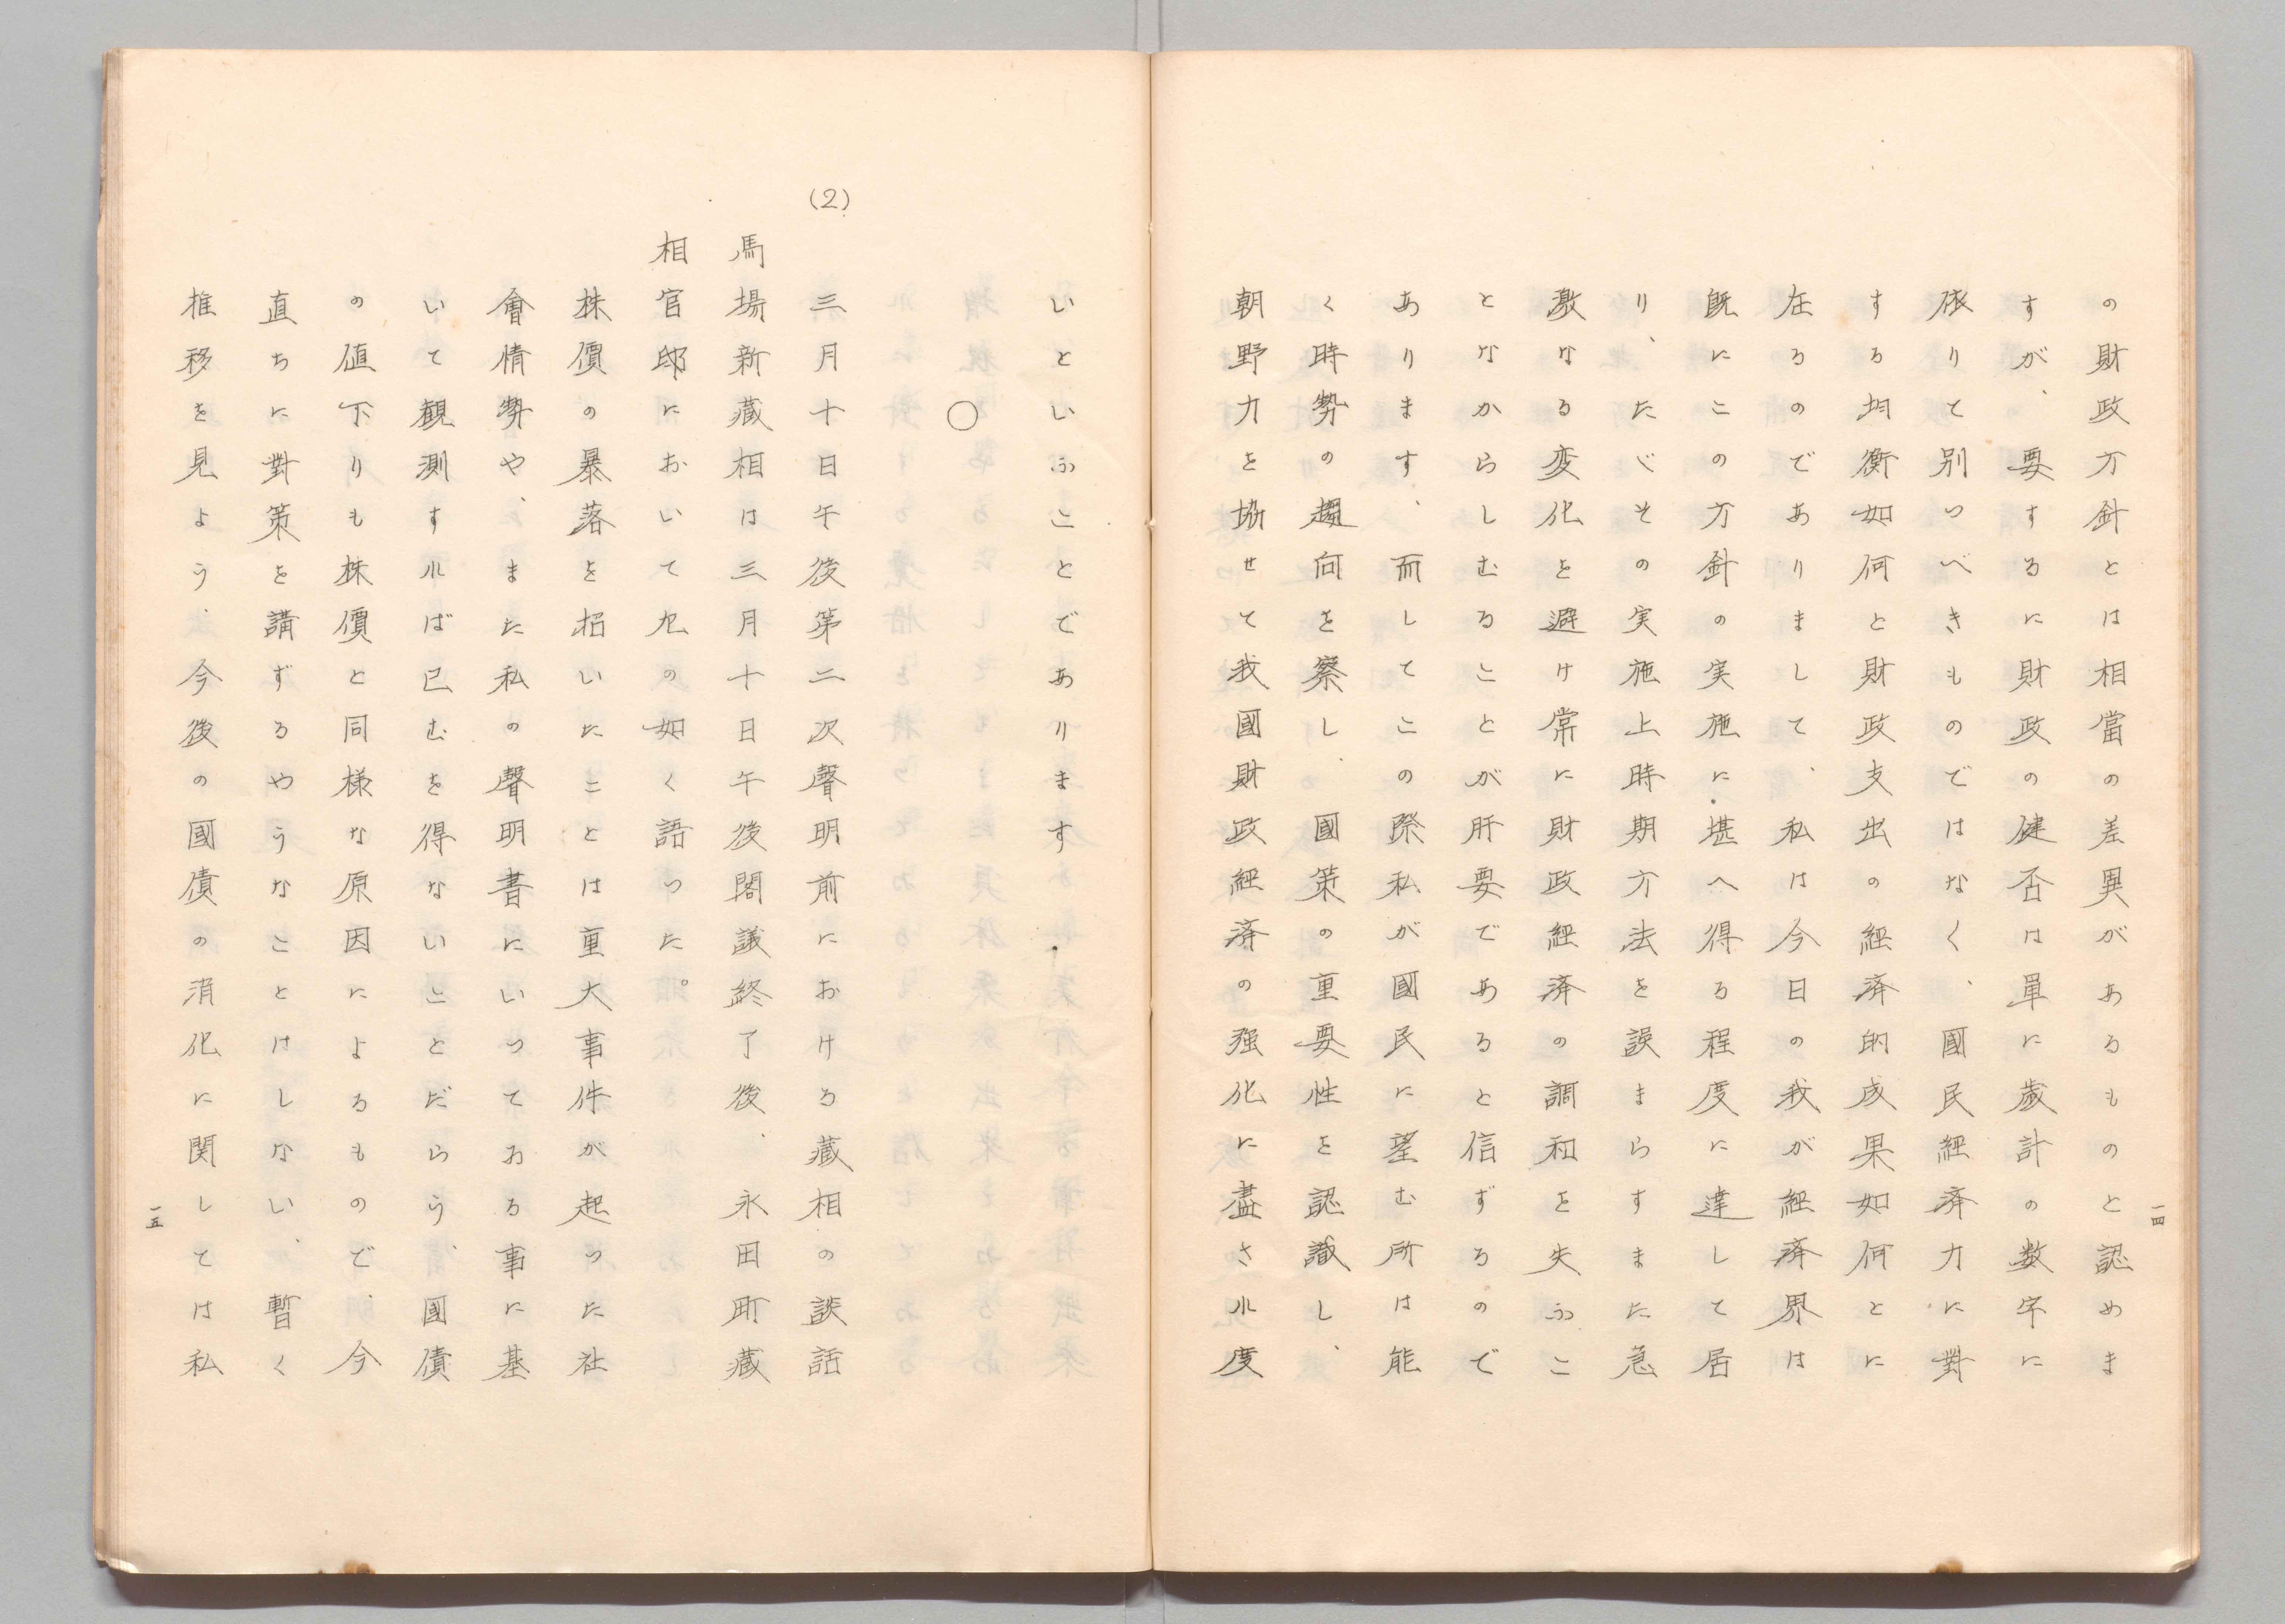 の財政方針とは相當の差異があるものと認めま
すが、要するに財政の健否は單に歳計の数字に
依りて別つべきものではなく、國民經済力に對
する均衡如何と財政支出の經済的成果如何とに
在るのでありまして、私は今日の我が經済界は
既にこの方針の実施に堪へ得る程度に達して居
り、たゞその実施上時期方法を誤まらすまた急
激なる変化を避け常に財政經済の調和を失ふこ
となからしむることが肝要であると信ずるので
あります、而してこの際私が國民に望む所は能
く時勢の趨向を察し、國策の重要性を認識し、
朝野力を協せて我國財政經済の强化に盡され度
一四
いといふことであります
○
(2)
三月十日午後第二次聲明前における藏相の談話
馬場新藏相は三月十日午後閣議終了後、永田町藏
相官邸において左の如く語った。
株價の暴落を招いたことは重大事件が起った社
會情勢や、また私の聲明書についっておる事に基
いて観測すれば已むを得ないことだらう、國債
の値下りも株價と同様な原因によるもので、今
直ちに對策を講ずるやうなことはしない、暫く
推移を見よう、今後の國債の消化に関しては私
一五